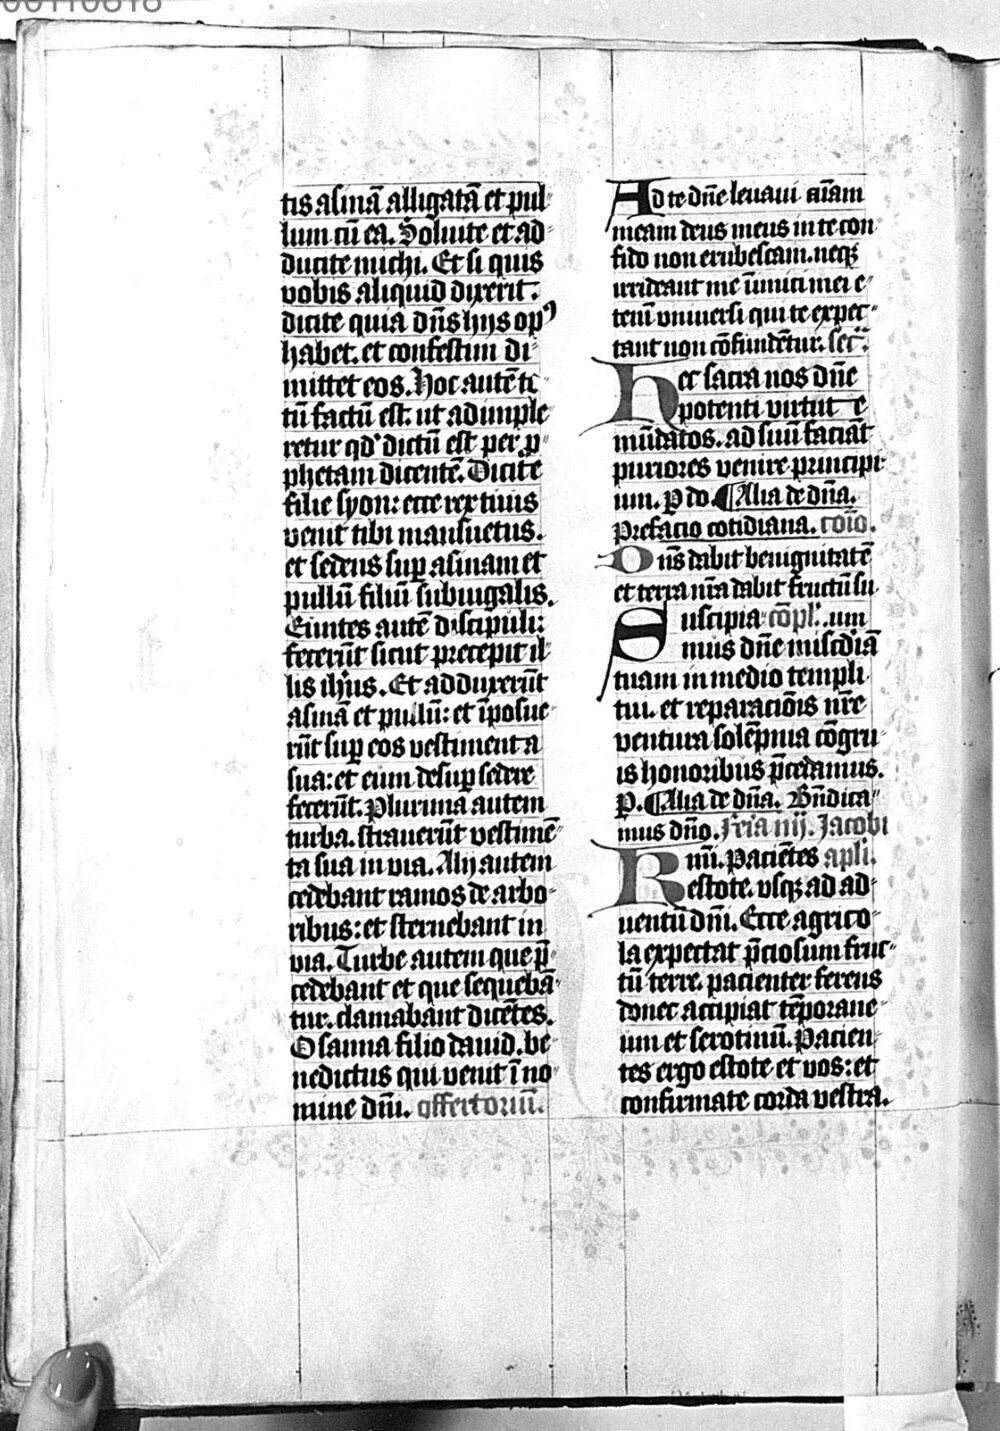 tis asinā alligatā et pul
lum cū ea. Soluite et ad
ducite michi. Et si quis
vobis aliquid dixerit:
dicite quia dn̄s hijs opꝰ
habet. et confestim di
mittet eos. Hoc autē to
tū factū est. ut adimple
retur qd' dictū est per p
phetam dicentē. Dicite
filie syon: ecce rex tuus
venit tibi mansuetus.
et sedens sup asinam et
pullū filiū subiugalis.
Euntes autē discipuli:
fecerūt sicut precepit il
lis ih̄us. Et adduxerūt
asinā et pullū: et īposue
rūt sup eos vestimenta
sua: et eum desup sedere
fecerūt. Plurima autem
turba. strauerūt vestimē
ta sua in via. Alij autem
cedebant ramos de arbo
ribus: et sternebant in
via. Turbe autem que p̄
cedebant et que sequebā
tur. clamabant dicētes.
Osanna filio dauid. be
nedictus qui venit ī no
mine dn̄i. offertoriū.
Ad te dn̄e leuaui aīam
meam deus meus in te con
fido non erubescam. neqꝫ
irrideant me īimici mei e
tenī vniuersi qui te expec
tant non cōfundētur. sec̄.
Hec sacra nos dn̄e
potenti virtute
mūdatos. ad suū faciāt
puriores venire principi
um. P do. ¶Alia de dn̄a.
Prefacio cotidiana. cōio.
Dn̄s dabit benignitatē
et terra nr̄a dabit fructū su
Suscipia cōpl'. um
mus dn̄e misc̄diā
tuam in medio templi
tui. et reparaciōis nr̄e
ventura solēpnia cōgru
is honoribus p̄cedamus.
P. ¶Alia de dn̄a. Bn̄dica
mus dn̄o. Fria iiij. Jacobi
Rmi. Paciētes apli.
estote. vsqꝫ ad ad
uentū dn̄i. Ecce agrico
la expectat p̄ciosum fruc
tū terre. pacienter ferens
donec accipiat tēporane
um et serotinū. Pacien
tes ergo estote et vos: et
confirmate corda vestra.